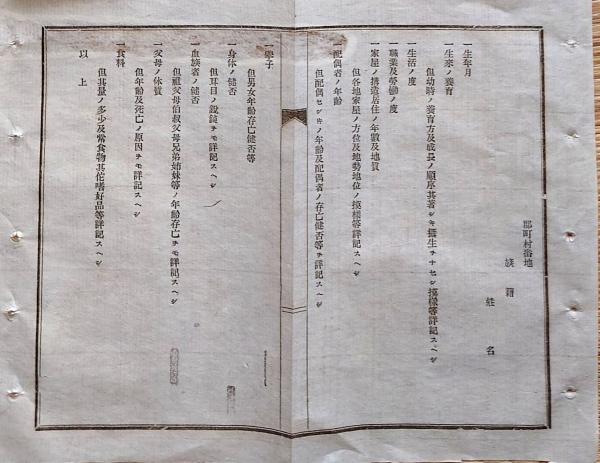 郡町村番地
族籍
姓名
一生年月
一生来ノ養育
但幼時ノ養育方及成長ノ順序其著シキ摂生ヲナセシ摸様等詳記スヘシ
一生活ノ度
一職業及労働ノ度
一家屋ノ構造居住ノ年数及地質
但各地家屋ノ方位及地勢地位ノ摸様等詳記スヘシ
一配偶者ノ年齢
但配偶セシ年ノ年齢及配偶者ノ存亡健否等ヲ詳記スヘシ
一挙子
但男女年齢存亡健否等
一身体ノ健否
但耳目ノ鋭鈍ヲモ詳記スヘシ
一血族者ノ健否
但祖父母伯叔父母兄弟姉妹等ノ年齢存亡ヲモ詳記スヘシ
一父母ノ体質
但年齢及死亡ノ原因ヲモ詳記スヘシ
一食料
但其量ノ多少及常食物其佗嗜好品等詳記スヘシ
以上